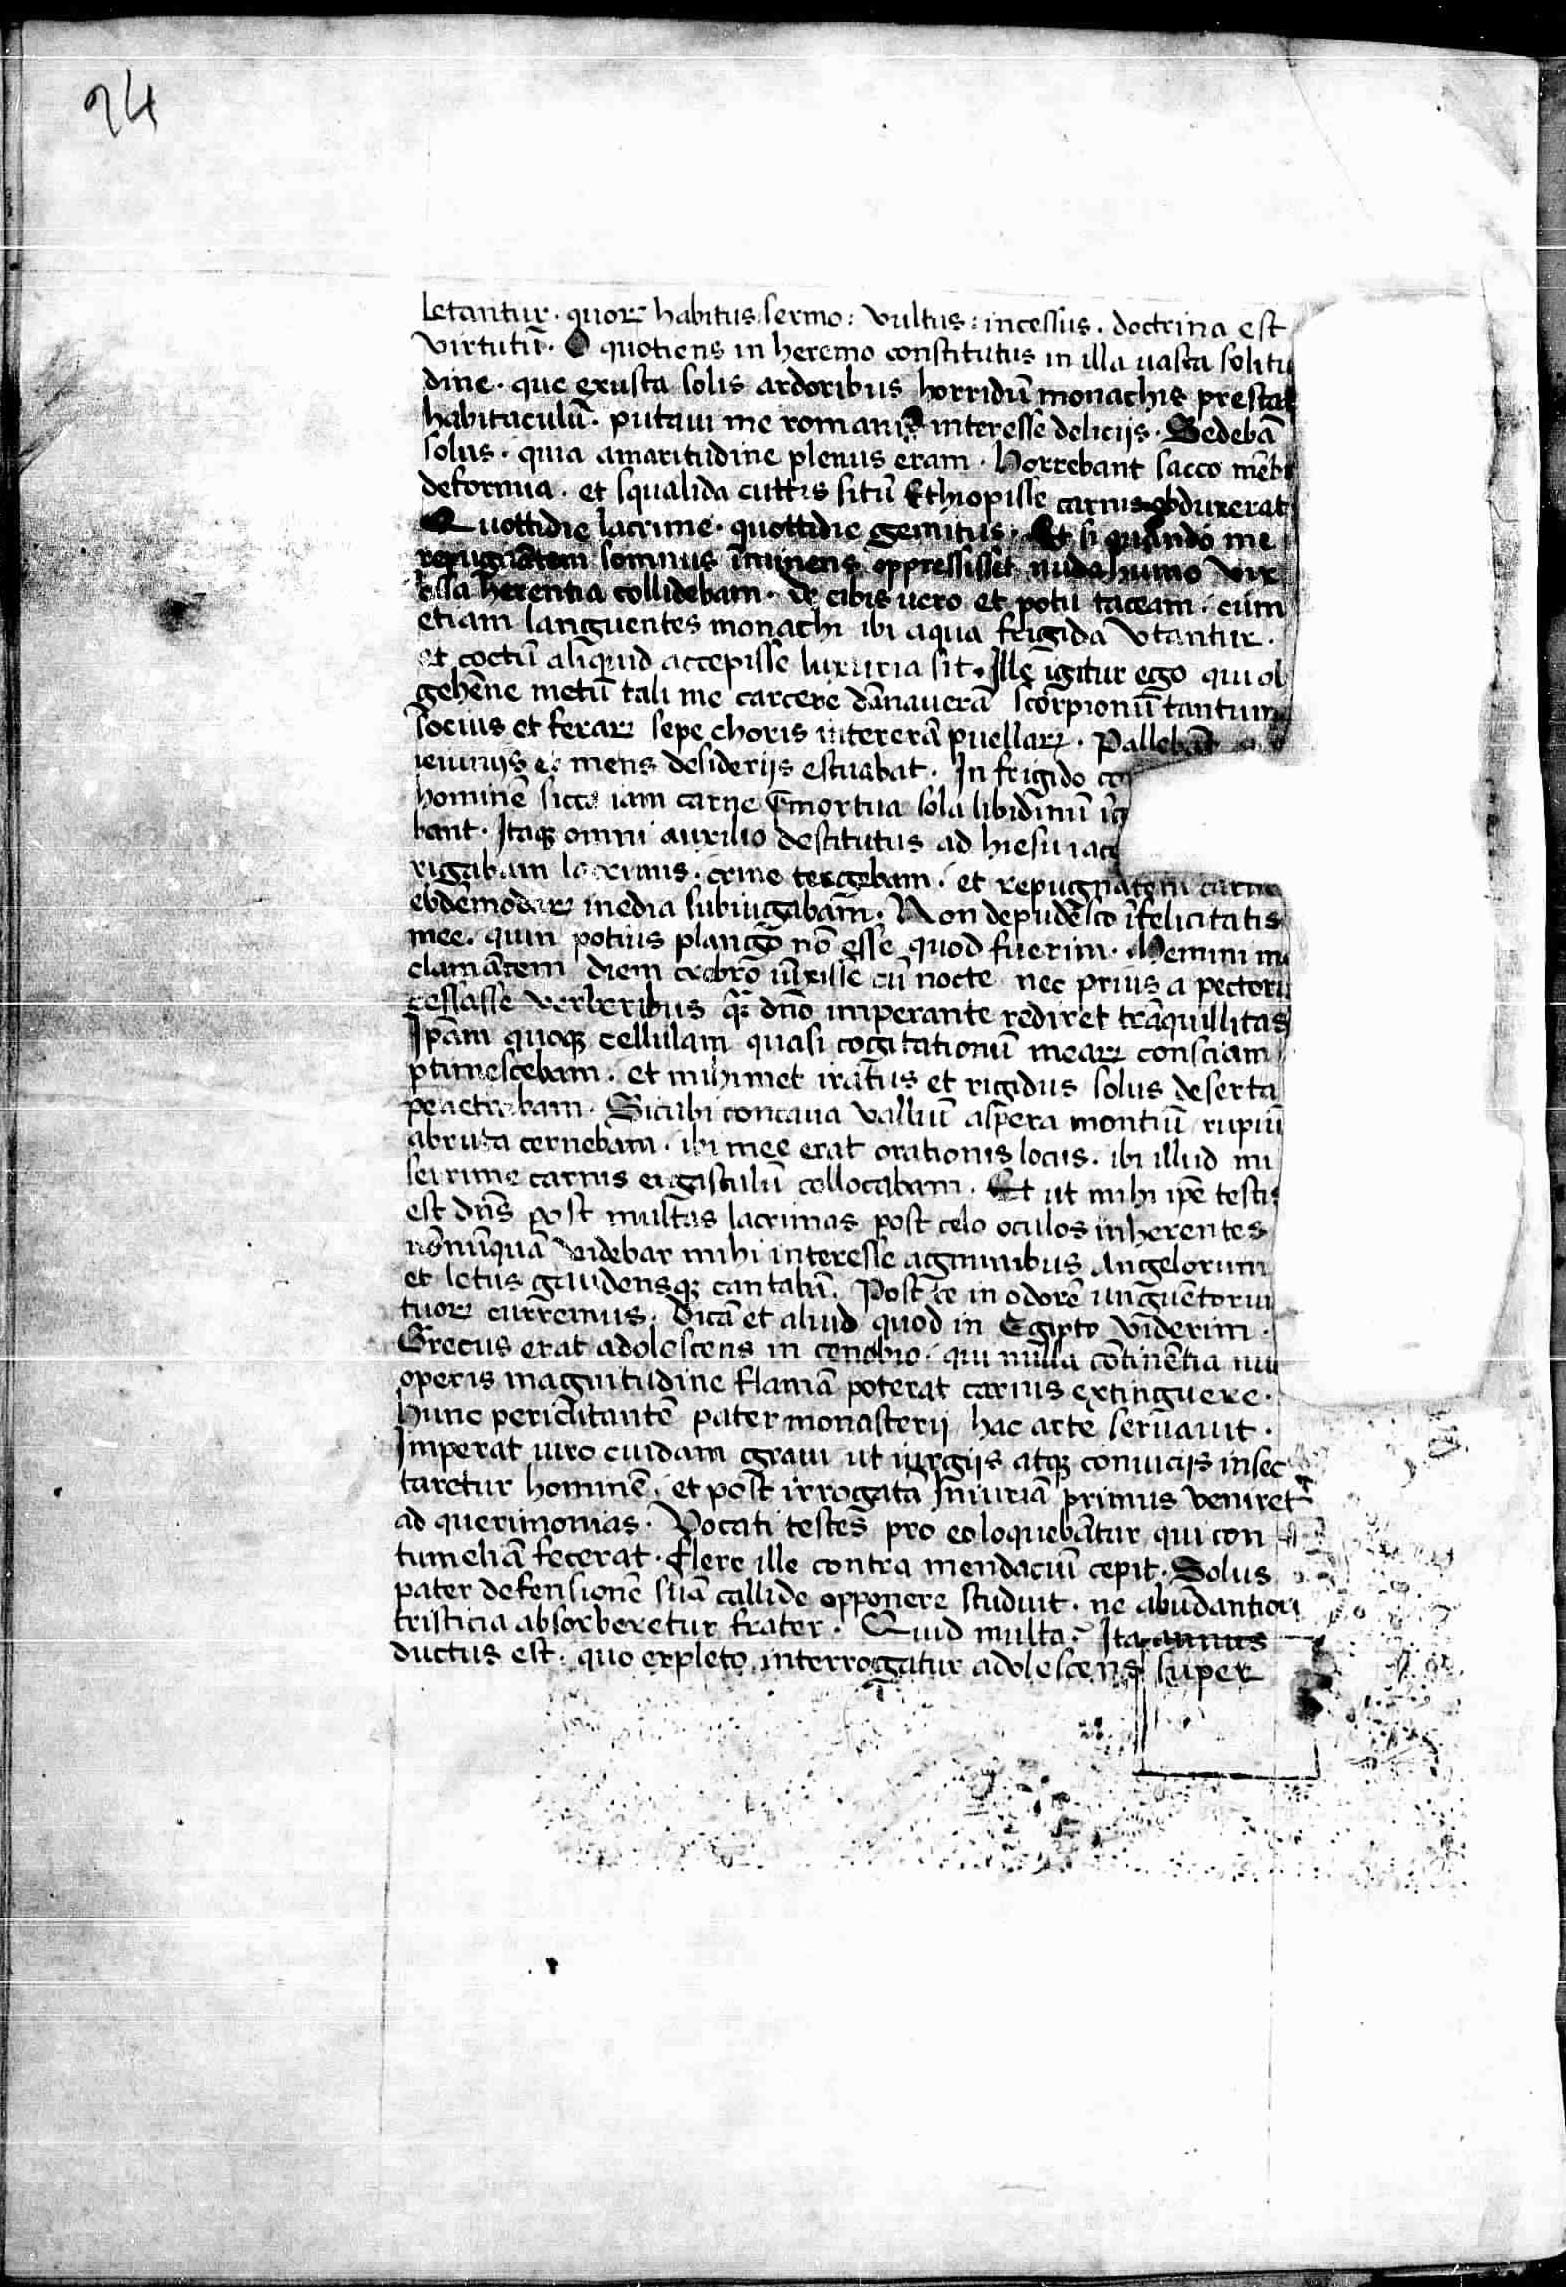 94
letantur. quorꝝ habitus: sermo: vultus: incessus. doctrina est
virtutū. O quotiens in heremo constitutus in illa uasta solitu
dine. que exusta solis ardoribus horridū monachis prestat
habitaculū. putaui me romanis interesse delicijs. Sedebā
solus. quia amaritudine plenus eram. Horrebant sacco mēb
deformia. et squalida cuttis sitū Ethiopisse carnis obduxerat
Quottidie lacrime. quottidie gemitus. Et si quando me
repugnātem somnus īminens oppressisset nuda humo vix
ossa herentia collidebam. de cibis uero et potu taceam. cum
etiam languentes monachi ibi aqua frigida vtantur.
et coctū aliquid accepisse luxuria sit. Ille igitur ego qui ob
gehēne metū tali me carcere dānauerā scorpionū tantum
socius et ferarꝝ sepe choris intererā puellarꝝ. Pallebāt
ieiunijs et mens desiderijs estuabat. In frigido co
hominē sicca iam carne emortua sola libidinū īc
bant. Itaqꝫ omni auxilio destitutus ad hiesu iace
rigabam lacrimis. crine tergebam. et repugnātem carne
ebdēmodarꝝ inedia subiugabam. Non depudēsco īfelicitatis
mee. quin potius plango nō esse quod fuerim. Memini m
clamātem diem crebro iūxisse cū nocte nec prius a pectoris
cessasse verberibus qꝫ dn̄o imperante rediret trāquillitas
Ipam quoqꝫ cellulam quasi cogitationū mearꝝ consciam
ptimescebam. et mihimet iratus et rigidus solus deserta
penetrabam. Sicubi concaua valliū aspera montiū rupiū
abruta cernebam. ibi mee erat orationis locus. ibi illud mi
serrime carnis ergastulū collocabam. Et ut mihi ipē testis
est dn̄s post multas lacrimas post celo oculos inherentes
nōnūquā videbar mihi interesse agminibus Angelorum
et letus gaudensqꝫ cantabā. Post te in odorē unguētorū
tuorꝝ curremus. Dicā et aliud quod in Egipto viderim.
Grecus erat adolescens in cenobio. qui nulla cōtinētia nu
operis magnitudine flamā poterat carnis extinguere.
hunc periclitantē pater monasterij hac arte seruauit.
Imperat uiro cuidam graui ut iurgijs atqꝫ conuicijs insec
taretur hominē. et post irrogatā iniuriā primus veniret
ad querimonias. Vocati testes pro eo loquebātur qui con
tumeliā fecerat. flere ille contra mendaciū cepit. Solus
pater defensionē suā callide opponere studuit. ne abūdantiori
tristicia absorberetur frater. Quid multa? Ita annus
ductus est. quo expleto interrogatur adolescens super